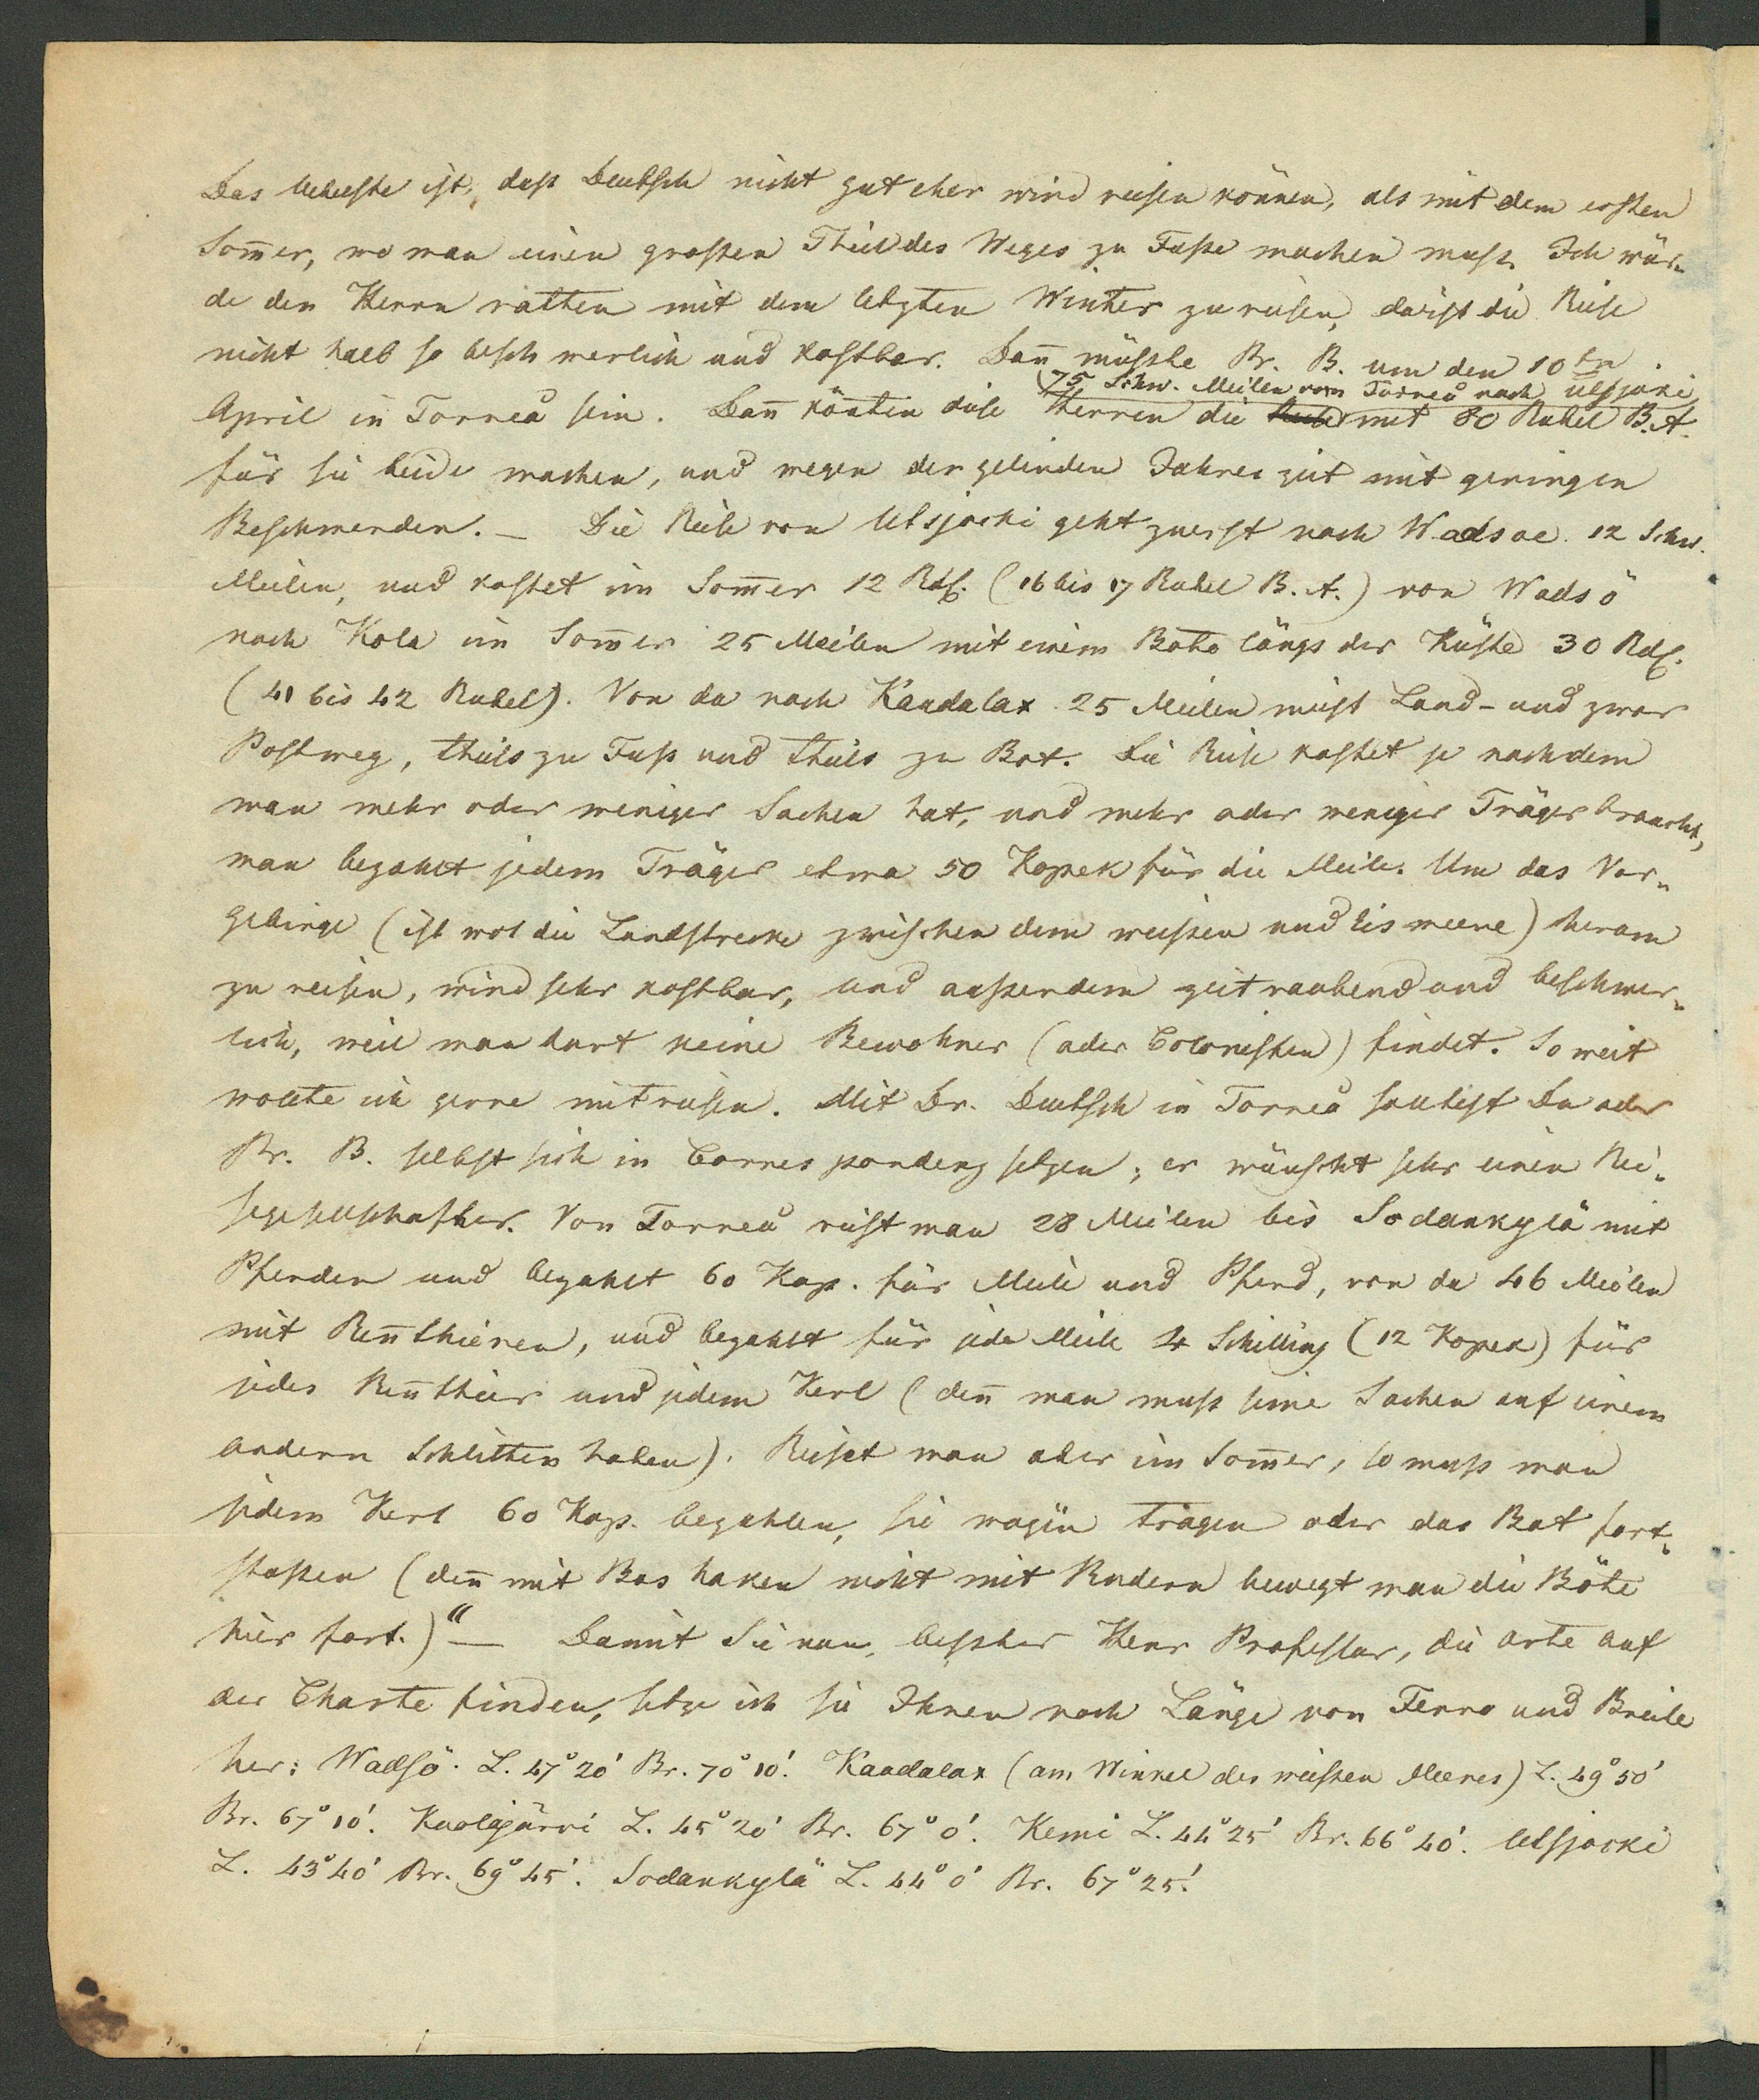 Das Uebelste ist, daß Deutsch nicht gut eher wird reisen können, als mit dem ersten
Som̅er, wo man einen großen Theil des Weges zu Fuße machen muß. Ich wür-
de den Herrn rathen mit dem letzten Winter zu reisen, da ist die Reise
nicht halb so beschwerlich und kostbar. Dan̅ müßte Br. B. um den 10ten
75 Schw. Meilen von Torneå nach Utsjoki
April in Torneå sein. Dan̅ kön̅ten diese Herren die Reise mit 80 Rubel B. A.
für sie beide machen, und wegen der gelinden Jahreszeit mit geringen
Beschwerden. — Die Reise von Utsjocki geht zuerst nach Wadsoe 12 Schw.
Meilen, und kostet im Som̅er 12 Rdl. (16 bis 17 Rubel B. A.) von Wadsö
nach Kola im Som̅er 25 Meilen mit einem Bote längs der Küste 30 Rdl.
(41 bis 42 Rubel). Von da nach Kandalax 25 Meilen meist Land- und zwar
Postweg, theils zu Fuß und theils zu Bot. Die Reise kostet je nachdem
man mehr oder weniger Sachen hat, und mehr oder weniger Träger braucht,
man bezahlt jedem Träger etwa 50 Kopek für die Meile. Um das Vor-
gebirge (ist wol die Landstrecke zwischen dem weißen und Eismeere) herum
zu reisen, wird sehr kostbar, und außerdem zeitraubend und beschwer-
lich, weil man dort keine Bewohner (oder Colonisten) findet. So weit
wollte ich gerne mitreisen. Mit Dr. Deutsch in Torneå solltest Du oder
Br. B. selbst sich in Correspondenz setzen; er wünscht sehr einen Rei-
segesellschafter. Von Torneå reist man 28 Meilen bis Sodankylä mit
Pferden und bezahlt 60 Kop. für Meile und Pferd, von da 46 Meilen
mit Ren̅thieren, und bezahlt für jede Meile 4 Schilling (12 Kopek) für
jedes Ren̅thier und jedem Kerl (den̅ man muß seine Sachen auf einem
andern Schlitten haben). Reiset man aber im Som̅er, so muß man
jedem Kerl 60 Kop. bezahlen, sie mögen tragen oder das Bot fort-
stoßen (den̅ mit Bos haken nicht mit Rudern bewegt man die Böte
hier fort.)“ — Damit Sie nun, bester Herr Professor, die Orte auf
der Charte finden, setze ich sie Ihnen nach Länge von Ferro und Breite
her: Wadsö. L. 47° 20′ Br. 70° 10′. Kandalax (am Winkel des weißen Meeres) L. 49° 50′
Br. 67° 10′. Kuolajärvi L. 45° 20′ Br. 67° 0′. Kemi L. 44° 25′ Br. 66° 40′. Utsjocki
L. 43° 40′ Br. 69° 45′. Sodankylä L. 44° 0′ Br. 67° 25′.